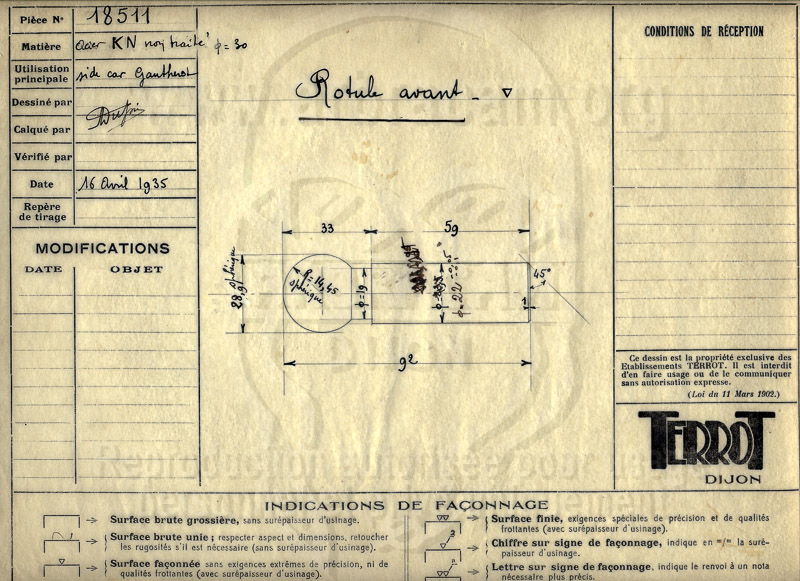 Pièce N° 18511
Matière acier KN non traité φ = 30
Utilisation principale side car Gautherot
Dessiné par
Calqué par
Vérifié par
Date 16 Avril 1935
Repère de tirage
MODIFICATIONS
DATE OBJET
Rotule avant - ▽
CONDITIONS DE RÉCEPTION
33
59
28,9 sphérique
R = 14,45
sphérique
φ = 19
45°
1
92
Ce dessin est la propriété exclusive des
Etablissements TERROT. Il est interdit
d'en faire usage ou de le communiquer
sans autorisation expresse.
(Loi du 11 Mars 1902.)
TERROT
DIJON
INDICATIONS DE FAÇONNAGE
Surface brute grossière, sans surépaisseur d'usinage.
Surface brute unie; respecter aspect et dimensions, retoucher
les rugosités s'il est nécessaire (sans surépaisseur d'usinage).
Surface façonnée sans exigences extrêmes de précision, ni de
qualités frottantes (avec surépaisseur d'usinage).
Surface finie, exigences spéciales de précision et de qualités
frottantes (avec surépaisseur d'usinage).
3
Chiffre sur signe de façonnage, indique en m/m la suré-
paisseur d'usinage.
n
Lettre sur signe de façonnage, indique le renvoi à un nota
nécessaire plus précis.